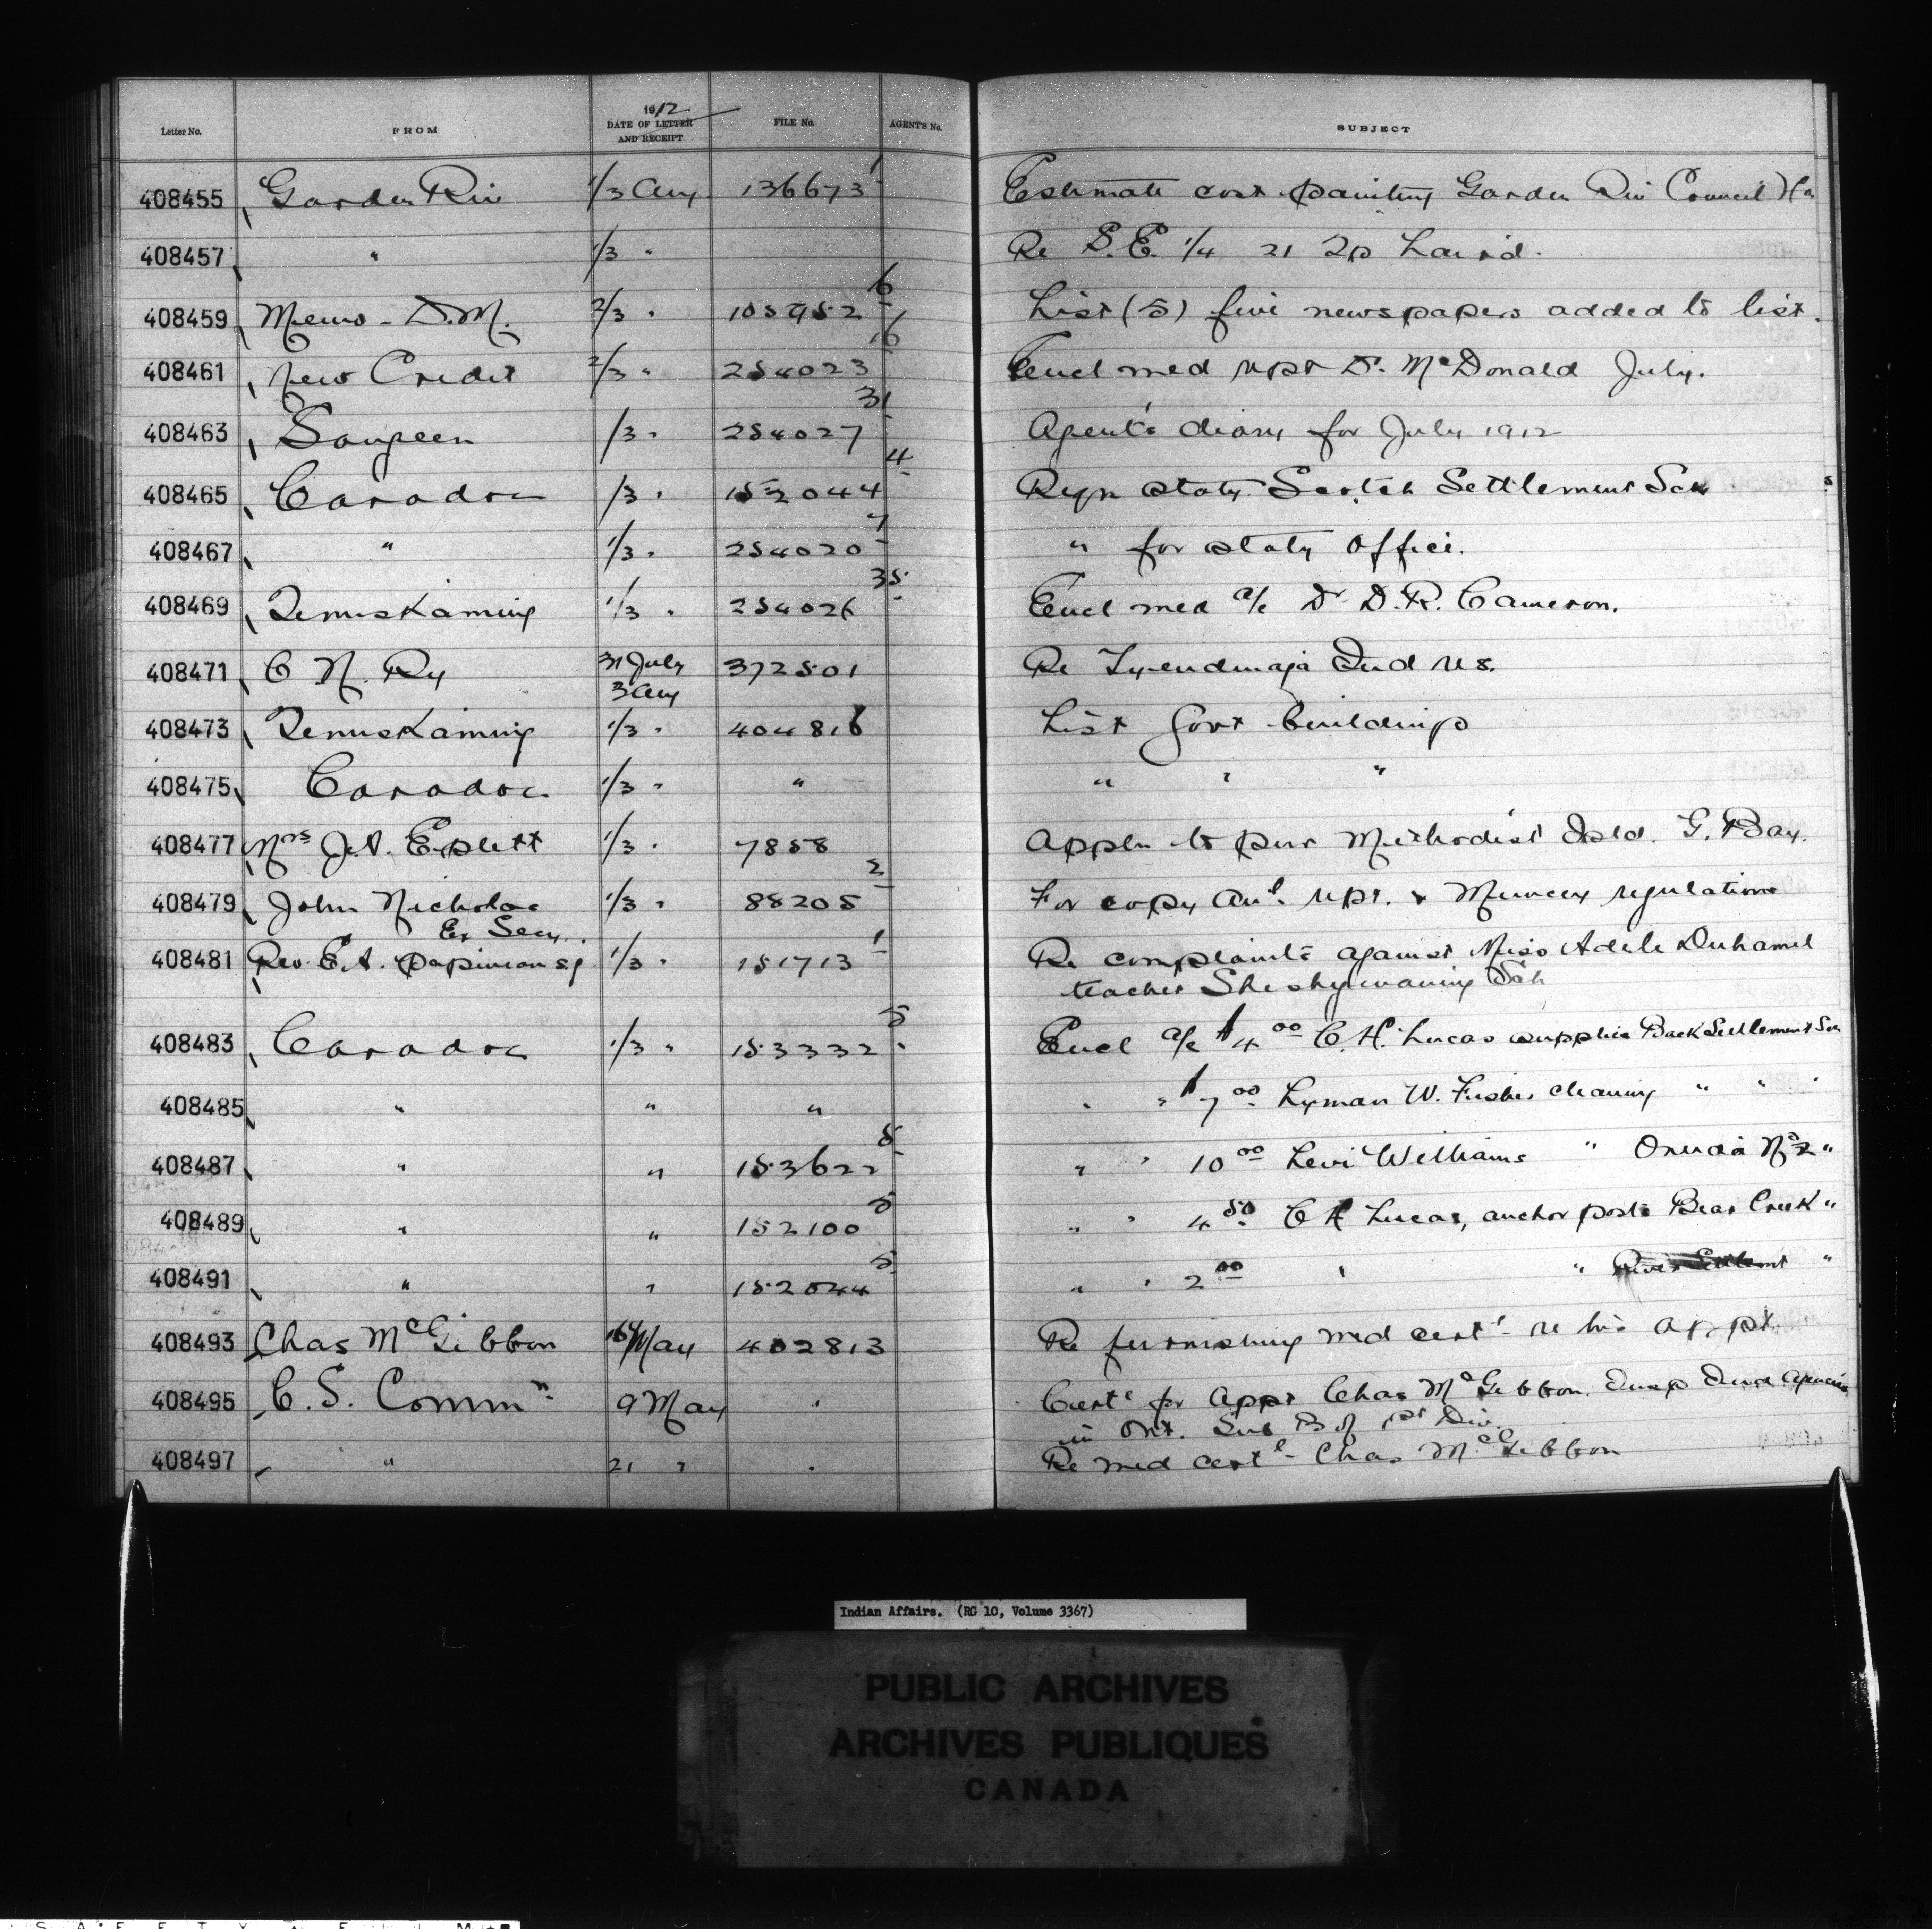 Letter No. FROM 1912 DATE OF LETTER AND RECEIPT FILE No. AGENT'S No. SUBJECT
408455 Garden Riv 1/3 Aug 136673 1 Estimate cost painting Garden Riv Council Ho
408457 " 1/3 " Re S.E. 1/4 21 Tp Laird.
408459 Memo - D.M. 2/3 " 6 List (5) five newspapers added to list.
408461 New Credit 2/3 " 254023 16 Encl med rept Dr. McDonald July.
408463 Saugeen /3 " 254027 31 Agent's diary for July 1912
408465 Caradoc /3 " 152044 4 Reqn staty Scotch Settlement Sch
408467 " 1/3 " 254020 7 " for staty office.
408469 Temiskaming 1/3 " 254026 35 Encl med a/c Dr D.R. Cameron.
408471 C N. Ry 31 July 3 Aug 372501 Re Tyendinaga Ind res.
408473 Temiskaming 1/3 " 404816 List Govt buildings
408475 Caradoc 1/3 " " " " "
408477 Mrs J.A. Eplett 1/3 " 7858 Appln to pur Methodist Isld. G. Bay.
408479 John Nicholas 1/3 " 88205 2 For copy Anl. rept. & Muncey regulations
Ex Secy.
408481 Rev. E.A. Papineau s.j 1/3 " 151713 1 Re complaints against Miss Adele Duhamel
teacher Sheshegwaning Sch
408483 Caradoc 1/3 " 153332 5 Encl a/c $4 00 C.H. Lucas supplies Back Settlement Sch
408485 " " " " " $7 00 Lyman W. Fisher cleaning " " "
408487 " " 153622 5 " " 10 00 Levi Williams " Oneida No 2 "
408489 " " 152100 5 " " 4 50 C H Lucas, anchor posts Bear Creek "
408491 " " 152044 5 " " 2 00 " " River Settlemt "
408493 Chas McGibbon May 402813 Re furnishing med cert - re his appt.
408495 C.S. Commn. 9 May " Cert for appt Chas McGibbon. Insp Ind Agencies
in Ont. Sub B of 1st Div.
408497 " 21 " " Re med cert - Chas McGibbon
Indian Affairs. (RG 10, Volume 3367)
PUBLIC ARCHIVES
ARCHIVES PUBLIQUES
CANADA
S A F E T Y F I L M